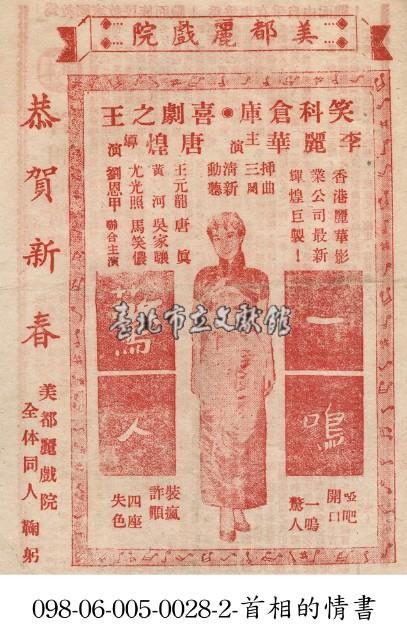 美都麗戲院
笑科倉庫●喜劇之王
李麗華主演
唐煌導演
香港麗華影
業公司最新
輝煌巨製！
插曲
三闋
清新
動聽
王元龍 唐真
黃河 吳家驤
尤光照 馬笑儂
劉恩甲 聯合主演
一鳴
驚人
啞吧
開口
一鳴
驚人
裝瘋
詐顛
四座
失色
恭賀新春
美都麗戲院
全体同人 鞠躬
臺北市立文獻館
098-06-005-0028-2-首相的情書